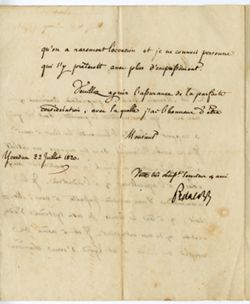 qu'on a rarement l'occasion et je ne connois personne
qui s'y prêteroit avec plus d'empressement.
Veuillez agréer l'assurance de la parfaite
considération, avec laquelle j'ai l'honneur d'être
Monsieur
Yverdun 22 Juillet 1820.
Votre très serviteur et ami